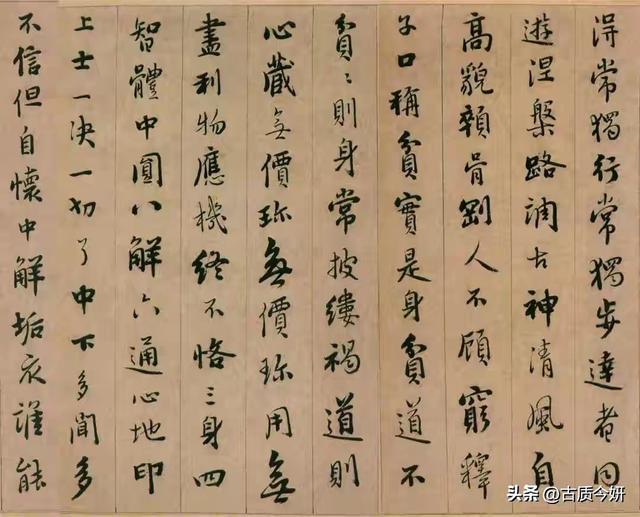 得常獨行常獨步達者同
遊涅槃路調古神清風自
高貌顇骨剛人不顧窮釋
子口稱貧實是身貧道不
貧〻則身常披縷褐道則
心藏無價珎無價珎用無
盡利物應機終不悋三身四
智體中圓八解六通心地印
上士一決一切了中下多聞多
不信但自懷中解垢衣誰能
头条@古质今妍